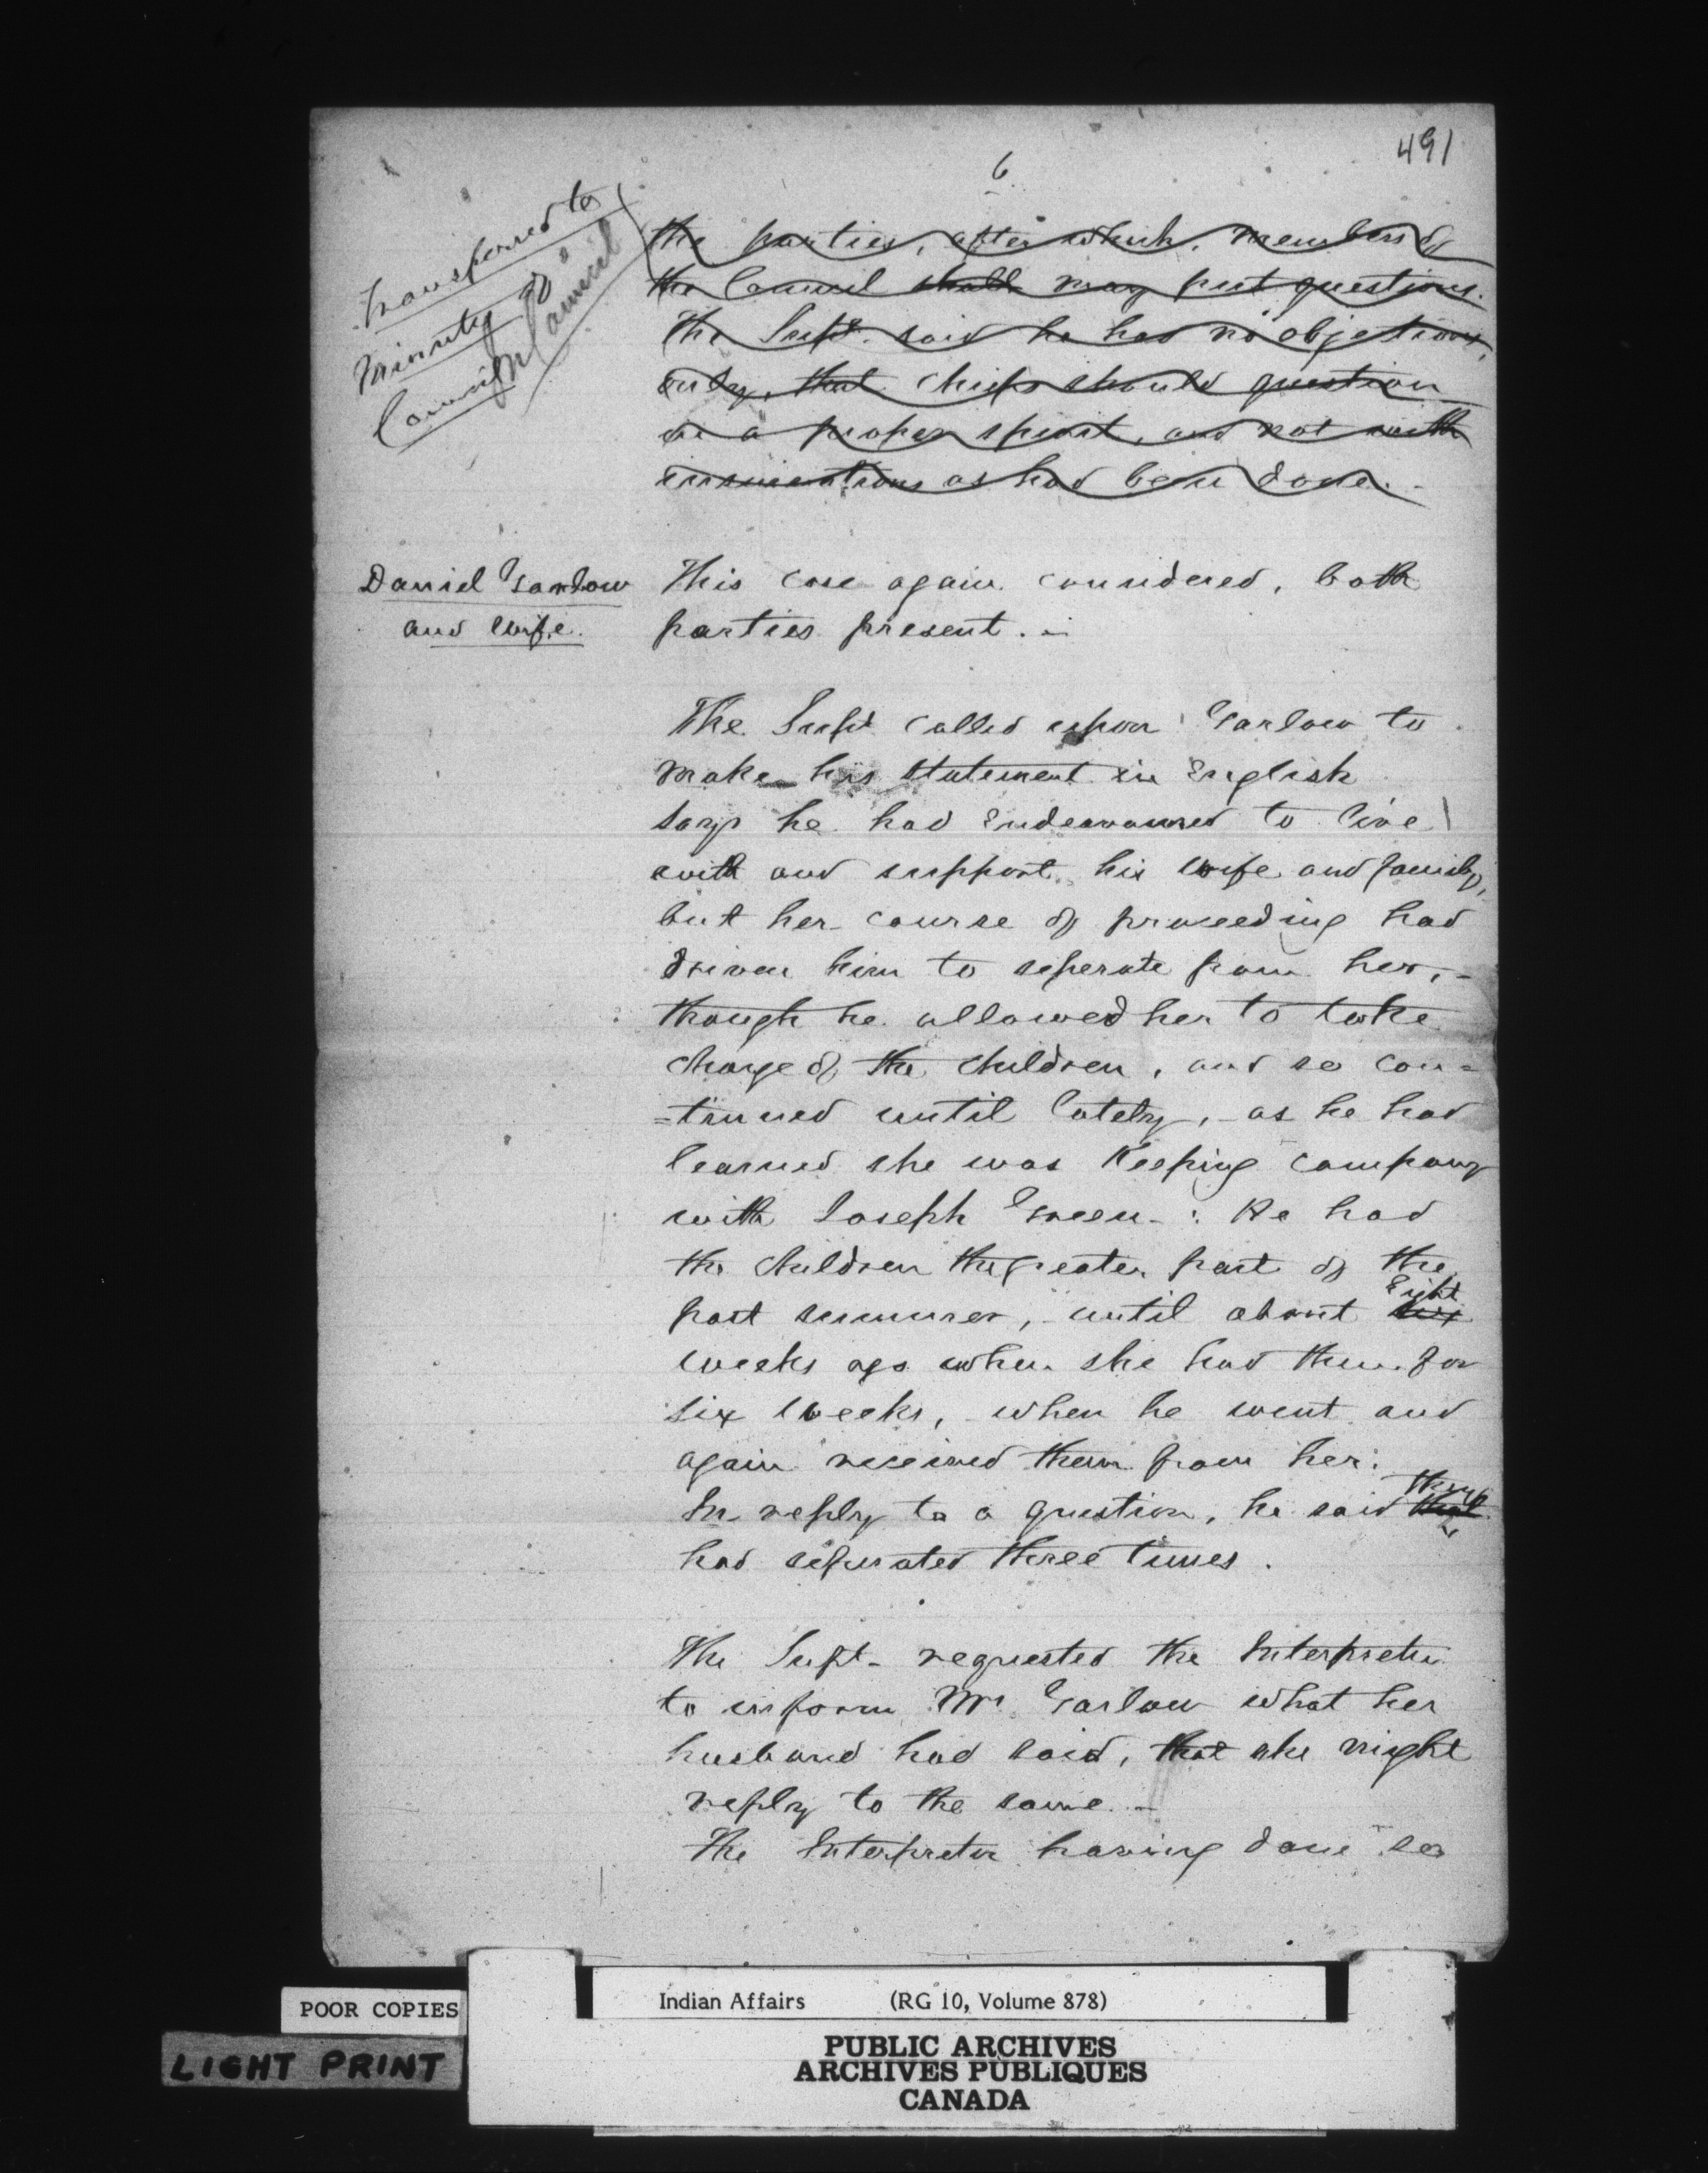 491
6
Transferred to
Minutes of
Council
Council
the parties, after which, members of
the Council shall may put questions.
The Supt. said he had no objections,
only, that chiefs should question
in a proper spirit, and not with
insinuations as had been done. -
Daniel Garlow
and wife.
This case again considered, both
parties present. -
The Supt called upon Garlow to
make his statement in English
says he had endeavoured to live
with and support his wife and family,
but her course of proceeding had
driven him to seperate from her, -
though he allowed her to take
charge of the children, and so con=
=tinued until lately, - as he had
learned she was keeping company
with Joseph Green - : He had
the children the greater part of the
past summer, - until about six Eight
weeks ago when she had them for
six weeks, - when he went and
again received them from her:
In reply to a question, he said that they
had seperated three times.
The Supt - requested the Interpreter
to inform Mrs Garlow what her
husband had said, that she might
reply to the same. -
The Interpreter having done so
POOR COPIES
LIGHT PRINT
Indian Affairs (RG 10, Volume 878)
PUBLIC ARCHIVES
ARCHIVES PUBLIQUES
CANADA